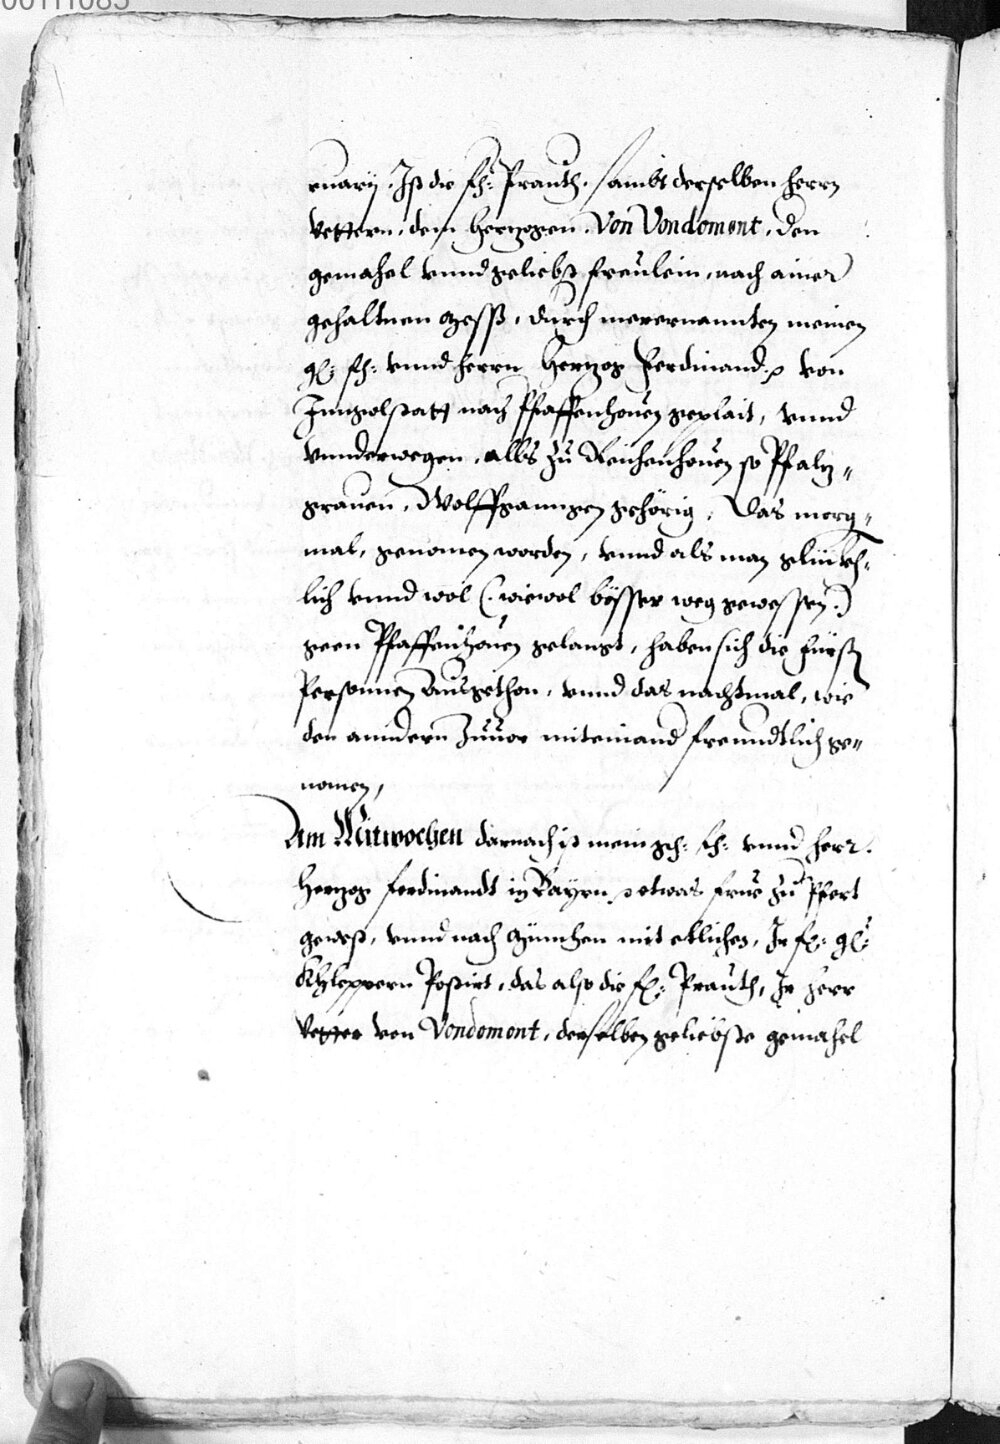 00111085
nuary. Ist die fh: Prauth. sambt derselben herrn
Vettern, dem hertzogen. Von Vondemont, den
gemahel vnnd geliebst freulein, nach ainer
gehaltnen Mesß, durch merernannten meinen
gl: fh: vnnd herrn hertzog Ferdinand von
Inngolstatt nach Pfaffenhouen geplait, vnnd
vnnderwegen, allss zu Reichenhouen so Pfaltz„
grauen, Wolffganngen gehörig, das morg„
mal, genomen worden, vnnd als man glückh„
lich vnnd wol (: wiewol bösser weg gewessen :)
geen Pfaffenhouen gelangt, haben sich die fürstl
Personnen ausgethon, vnnd das nachtmal, wie
den anndern Zuuor miteinand freundtlich ge„
nomen,
Am Mitwochen darnach ist mein gh: fh: vnnd herr.
Hertzog ferdinandt in Bayrn etwas frue zu Pfert
gewest, vnnd nach München mit etlichen, Ir fl: gl:
Khleppern Postirt, das also die fl: Prauth, Ir herr
Vetter von Vondemont, derselben geliebste gemahel